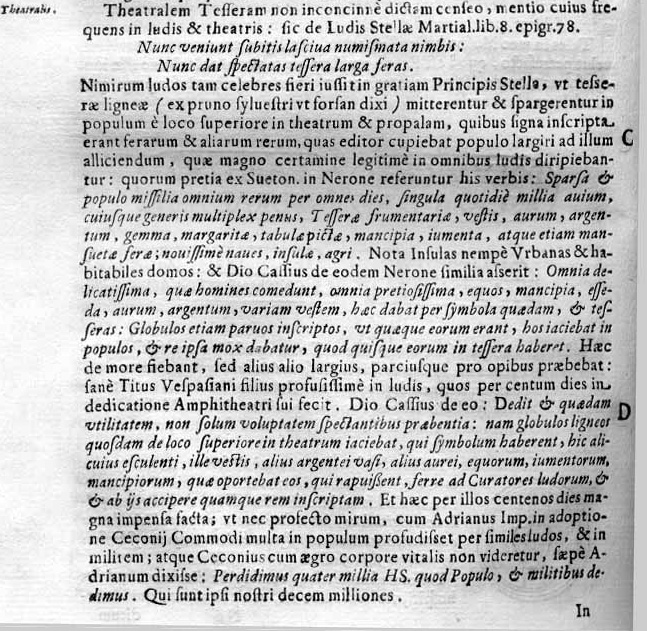 Theatralis.
Theatralem Tesseram non inconcinnè dictam censeo, mentio cuius fre-
quens in ludis & theatris: sic de Ludis Stellæ Martial.lib.8.epigr.78.
Nunc veniunt subitis lasciua numismata nimbis:
Nunc dat spectatas tessera larga feras.
Nimirum ludos tam celebres fieri iussit in gratiam Principis Stella, vt tesse-
ræ ligneæ (ex pruno syluestri vt forsan dixi) mitterentur & spargerentur in
populum è loco superiore in theatrum & propalam, quibus signa inscripta
erant ferarum & aliarum rerum, quas editor cupiebat populo largiri ad illum
C
alliciendum, quæ magno certamine legitimè in omnibus ludis diripieban-
tur: quorum pretia ex Sueton. in Nerone referuntur his verbis: Sparsa &
populo missilia omnium rerum per omnes dies, singula quotidiè millia auium,
cuiusque generis multiplex penus, Tesseræ frumentariæ, vestis, aurum, argen-
tum, gemma, margaritæ, tabulæ pictæ, mancipia, iumenta, atque etiam man-
suetæ feræ; nouissimè naues, insulæ, agri. Nota Insulas nempè Vrbanas & ha-
bitabiles domos: & Dio Cassius de eodem Nerone similia asserit: Omnia de-
licatissima, quæ homines comedunt, omnia pretiosissima, equos, mancipia, esse-
da, aurum, argentum, variam vestem, hæc dabat per symbola quædam, & tes-
seras: Globulos etiam paruos inscriptos, vt quæque eorum erant, hos iaciebat in
populos, & re ipsa mox dabatur, quod quisque eorum in tessera haberet. Hæc
de more fiebant, sed alius alio largius, parciusque pro opibus præbebat:
sanè Titus Vespasiani filius profusissimè in ludis, quos per centum dies in
dedicatione Amphitheatri sui fecit. Dio Cassius de eo: Dedit & quædam
D
vtilitatem, non solum voluptatem spectantibus præbentia: nam globulos ligneos
quosdam de loco superiore in theatrum iaciebat, qui symbolum haberent, hic ali-
cuius esculenti, ille vestis, alius argentei vasi, alius aurei, equorum, iumentorum,
mancipiorum, quæ oportebat eos, qui rapuissent, ferre ad Curatores ludorum, &
& ab ijs accipere quamque rem inscriptam. Et hæc per illos centenos dies ma-
gna impensa facta; vt nec profecto mirum, cum Adrianus Imp. in adoptio-
ne Ceconij Commodi multa in populum profudisset per similes ludos, & in
militem; atque Ceconius cum ægro corpore vitalis non videretur, sæpè A-
drianum dixisse: Perdidimus quater millia HS. quod Populo, & militibus de-
dimus. Qui sunt ipsi nostri decem milliones.
In